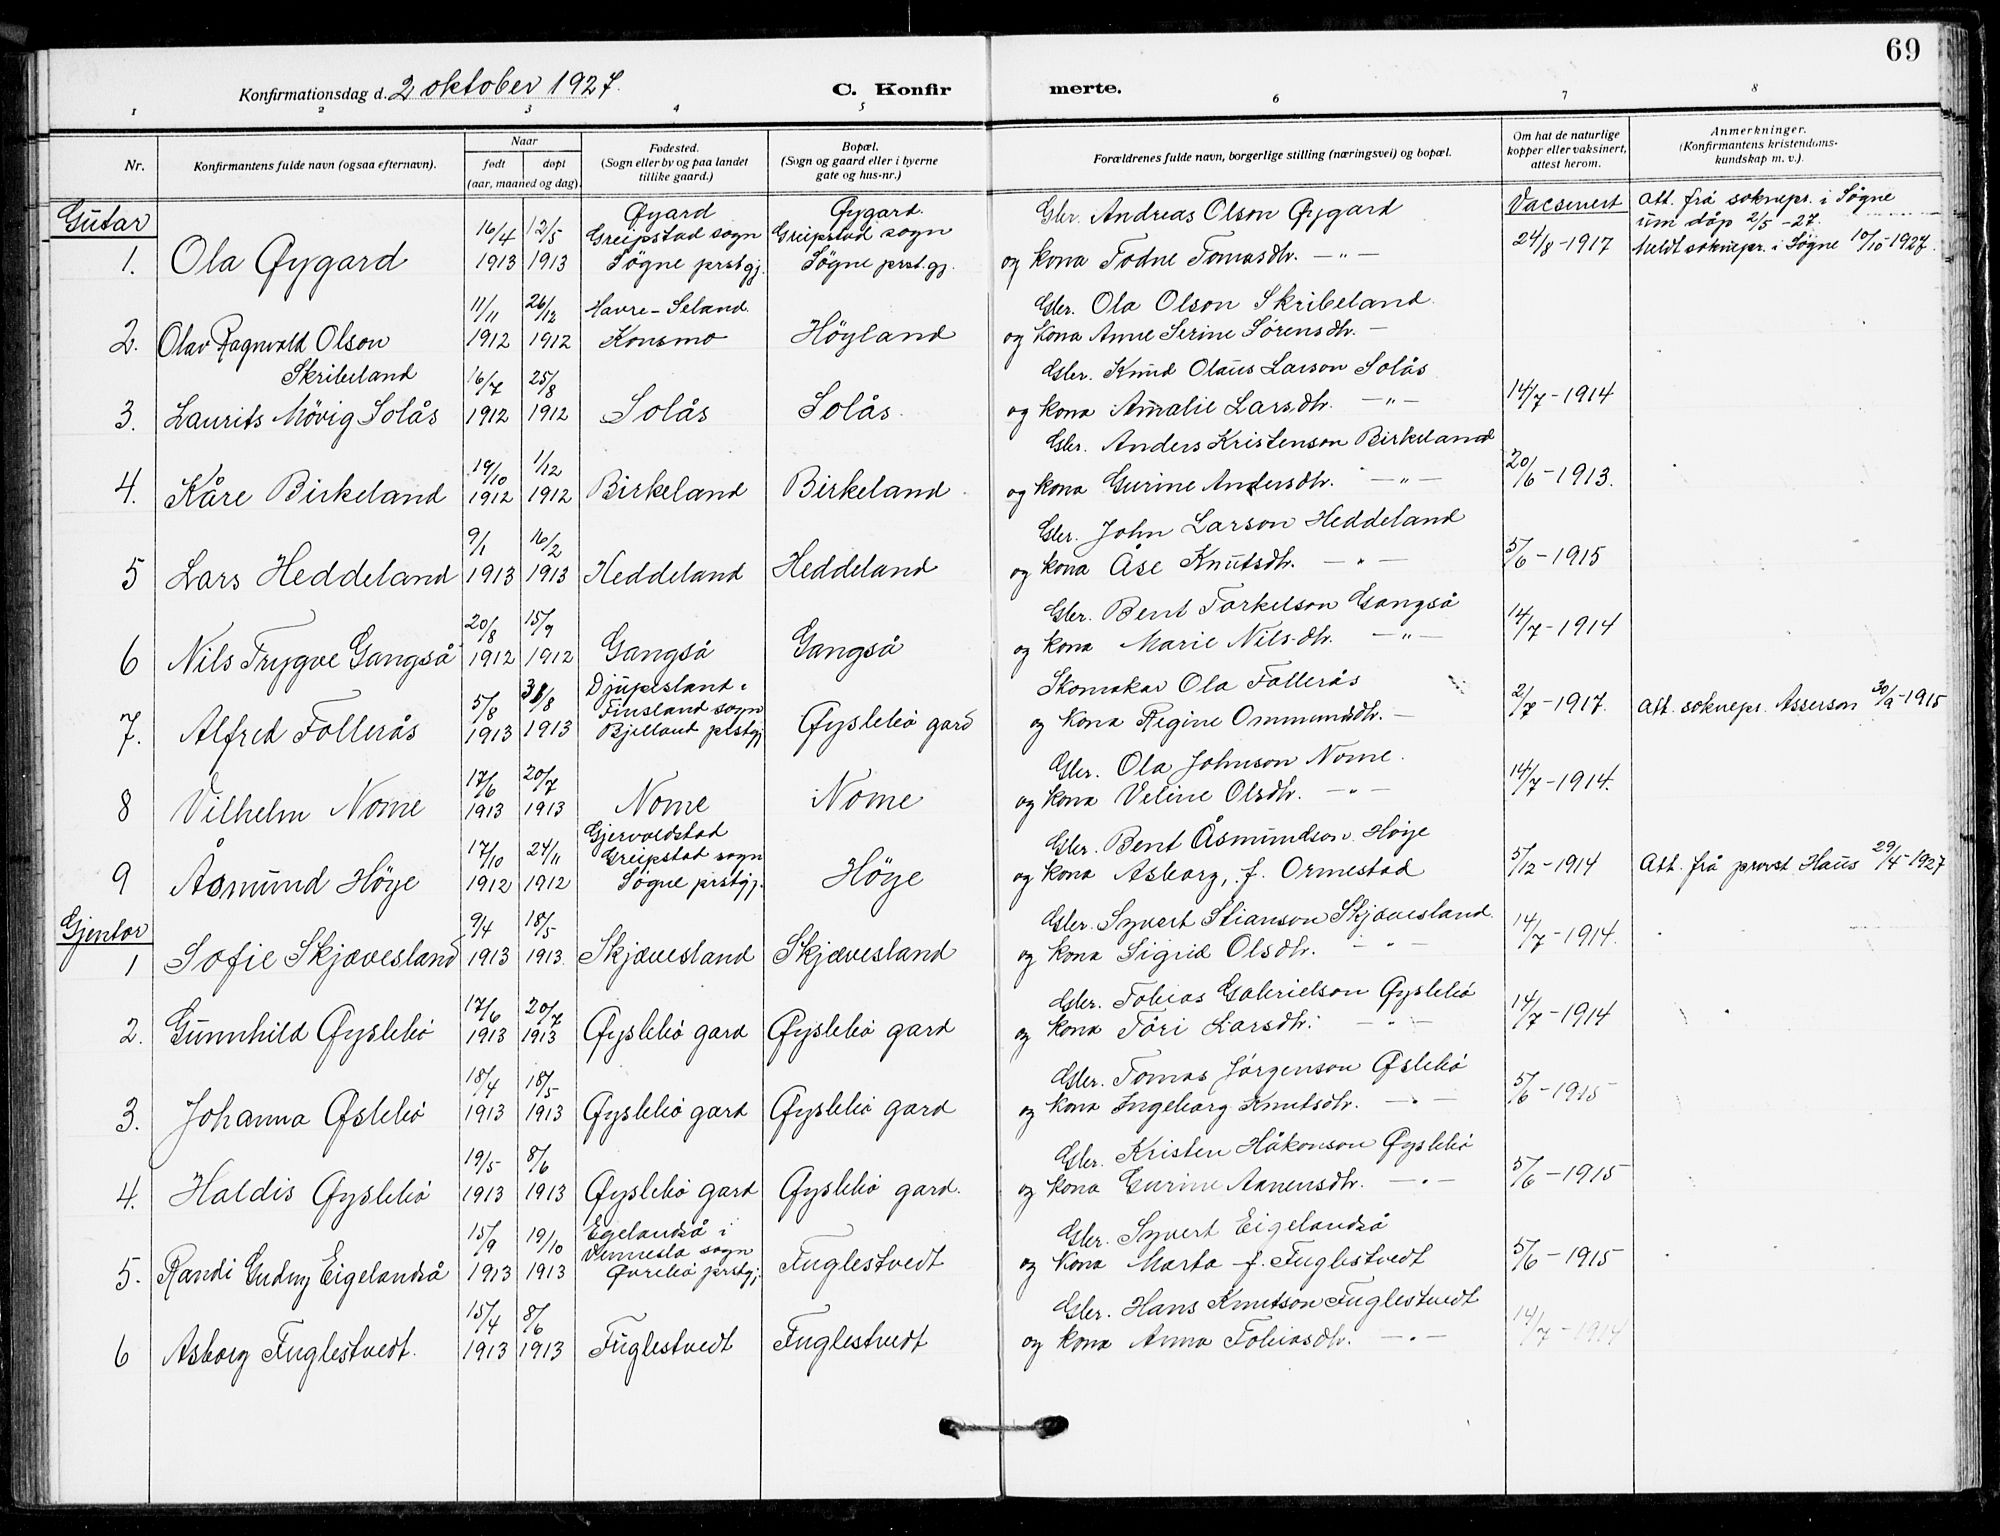 69
Konfirmationsdag d. 2 oktober 1927.
C. Konfirmerte.
1 2 3 4 5 6 7 8
Nr. Konfirmantens fulde navn (ogsaa efternavn). Naar født døpt (aar, maaned og dag). Fødested. (Sogn eller by og paa landet tillike gaard.) Bopæl. (Sogn og gaard eller i byerne gate og hus-nr.) Forældrenes fulde navn, borgerlige stilling (næringsvei) og bopæl. Om hat de naturlige kopper eller vaksinert, attest herom. Anmerkninger. (Konfirmantens kristendomskundskap m. v.).
Gutar
1. Ola Øygard 16/4 1913 12/5 1913 Øyard Greipstad sogn Søgne prstgj. Øygard. Greipstad sogn Søgne prst.gj. Gbr. Andreas Olson Øygard og kona Todne Tomasdtr. — " — Vacsinert 24/8 - 1917 Att. frå soknepr. i Søgne um dåp 2/5 - 27. Meldt soknepr. i Søgne 10/10 - 1927.
2. Olav Ragnvald Olson Skribeland 11/11 1912 26/12 1912 Havre-Seland. Konsmo Höyland Gbr. Ola Olson Skribeland. og kona Anne Serine Sørensdtr. —
3. Laurits Mövig Solås 16/7 1912 25/8 1912 Solås Solås. Gbr. Knud Olaus Larson Solås og kona Amalie Larsdtr. — " — 14/7 - 1914
4. Kåre Birkeland 19/10 1912 1/12 1912 Birkeland Birkeland. Gbr. Anders Kristenson Birkeland og kona Gurine Andersdtr. — " — 20/6 - 1913.
5 Lars Heddeland 9/1 1913 16/2 1913 Heddeland Heddeland Gbr. John Larson Heddeland og kona Åse Knutsdtr. — " — 5/6 - 1915
6 Nils Trygve Gangså 20/8 1912 15/9 1912 Gangså Gangså Gbr. Bent Torkelson Gangså og kona Marie Nilsdtr. — " — 14/7 - 1914
7. Alfred Follerås 5/8 1913 31/8 1913 Djupesland i Finsland sogn Bjelland prstgj Øyslebö gard Skomakar Ola Follerås og kona Regine Ommundsdtr. — 2/7 - 1917. Att. soknepr. Asserson 30/9 - 1915
8 Vilhelm Nome 17/6 1913 20/7 1913 Nome Nome Gbr. Ola Johnson Nome. og kona Veline Olsdtr. — " — 14/7 - 1914.
9 Åsmund Höye 17/10 1912 24/11 1912 Gjervoldstad Greipstad sogn Søgne prstgj. Höye Gbr. Bent Åsmundson Höye og kona Asborg, f. Ormestad 5/12 - 1914 Att. frå provst Haus 29/4 - 1927
Gjentor
1 Sofie Skjævesland 9/4 1913 18/5 1913. Skjævesland Skjævesland Gbr. Syvert Stianson Skjævesland. og kona Sigrid Olsdtr. — " — 14/7 - 1914.
2. Gunnhild Øyslebö 17/6 1913 20/7 1913 Øyslebö gard Øyslebö gard Gbr. Tobias Gabrielson Øyslebö og kona Töri Larsdtr. — " — 14/7 - 1914
3. Johanna Øslebö 18/4 1913 18/5 1913 Øyslebö gard Øyslebö gard Gbr. Tomas Jörgenson Øslebö og kona Ingeborg Knutsdtr. — " — 5/6 - 1915
4. Haldis Øyslebö 19/5 1913 8/6 1913 Øyslebö gard Øyslebö gard. Gbr. Kristen Håkonson Øyslebö og kona Gurine Aanensdtr. — " — 5/6 - 1915
5. Randi Gudny Eigelandså 15/9 1913 19/10 1913 Egelandså i Vennesla sogn Øvrebö prstgj. Fuglestvedt Gbr. Syvert Eigelandså og kona Marta f. Fuglestvedt 5/6 - 1915
6 Asborg Fuglestvedt. 15/4 1913 8/6 1913 Fuglestvedt Fuglestvedt Gbr. Hans Knutson Fuglestvedt og kona Anna Tobiasdtr. — " — 14/7 - 1914